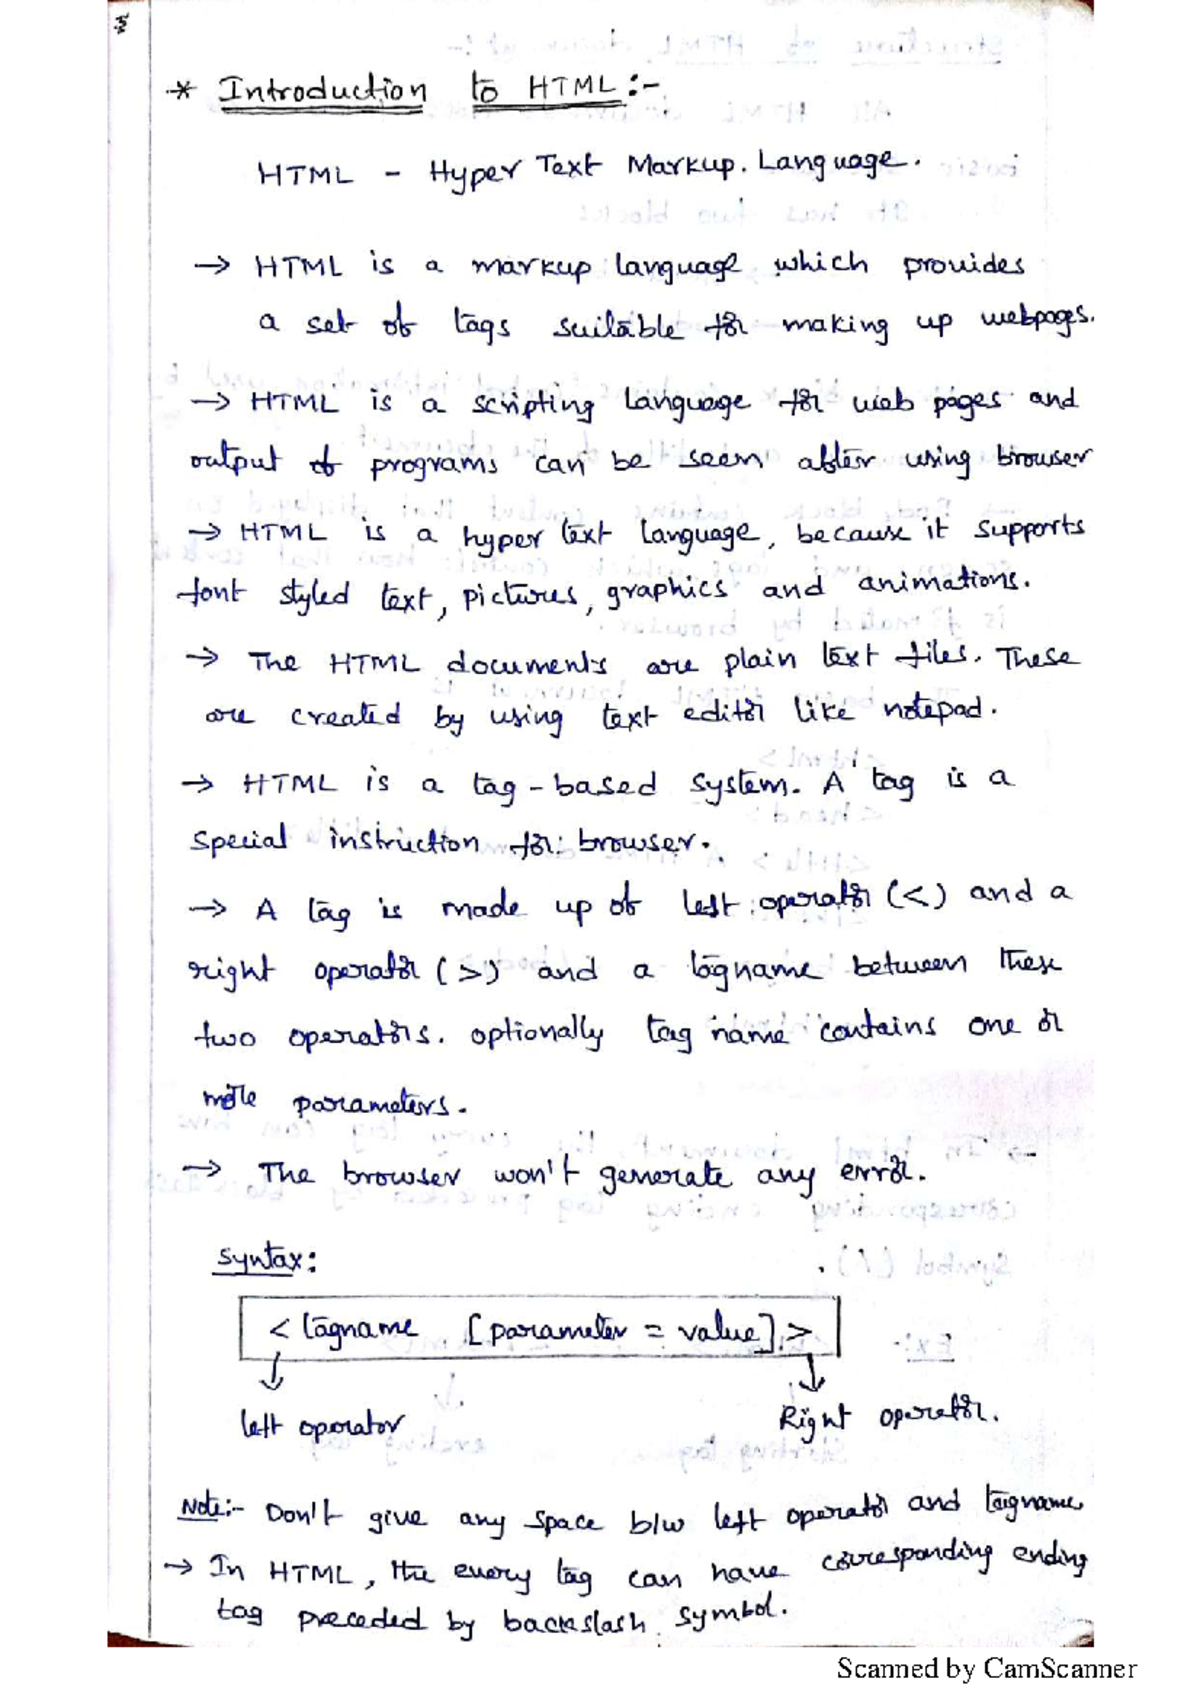 * Introduction to HTML:-
HTML - Hyper Text Markup. Language.
→ HTML is a markup language which provides
a set of tags suitable for making up webpages.
→ HTML is a scripting language for web pages and
output of programs can be seem after using browser
→ HTML is a hyper text language, because it supports
font styled text, pictures, graphics and animations.
→ The HTML documents are plain text files. These
are created by using text editor like notepad.
→ HTML is a tag-based system. A tag is a
special instruction for browser.
→ A tag is made up of left operator (<) and a
right operator (>) and a tagname between these
two operators. optionally tag name contains one or
more parameters.
→ The browser won't generate any error.
Syntax:
< tagname [parameter = value] >
left operator Right operator.
Note:- Don't give any space b/w left operator and tagname
→ In HTML, the every tag can have corresponding ending
tag preceded by backslash symbol.
Scanned by CamScanner